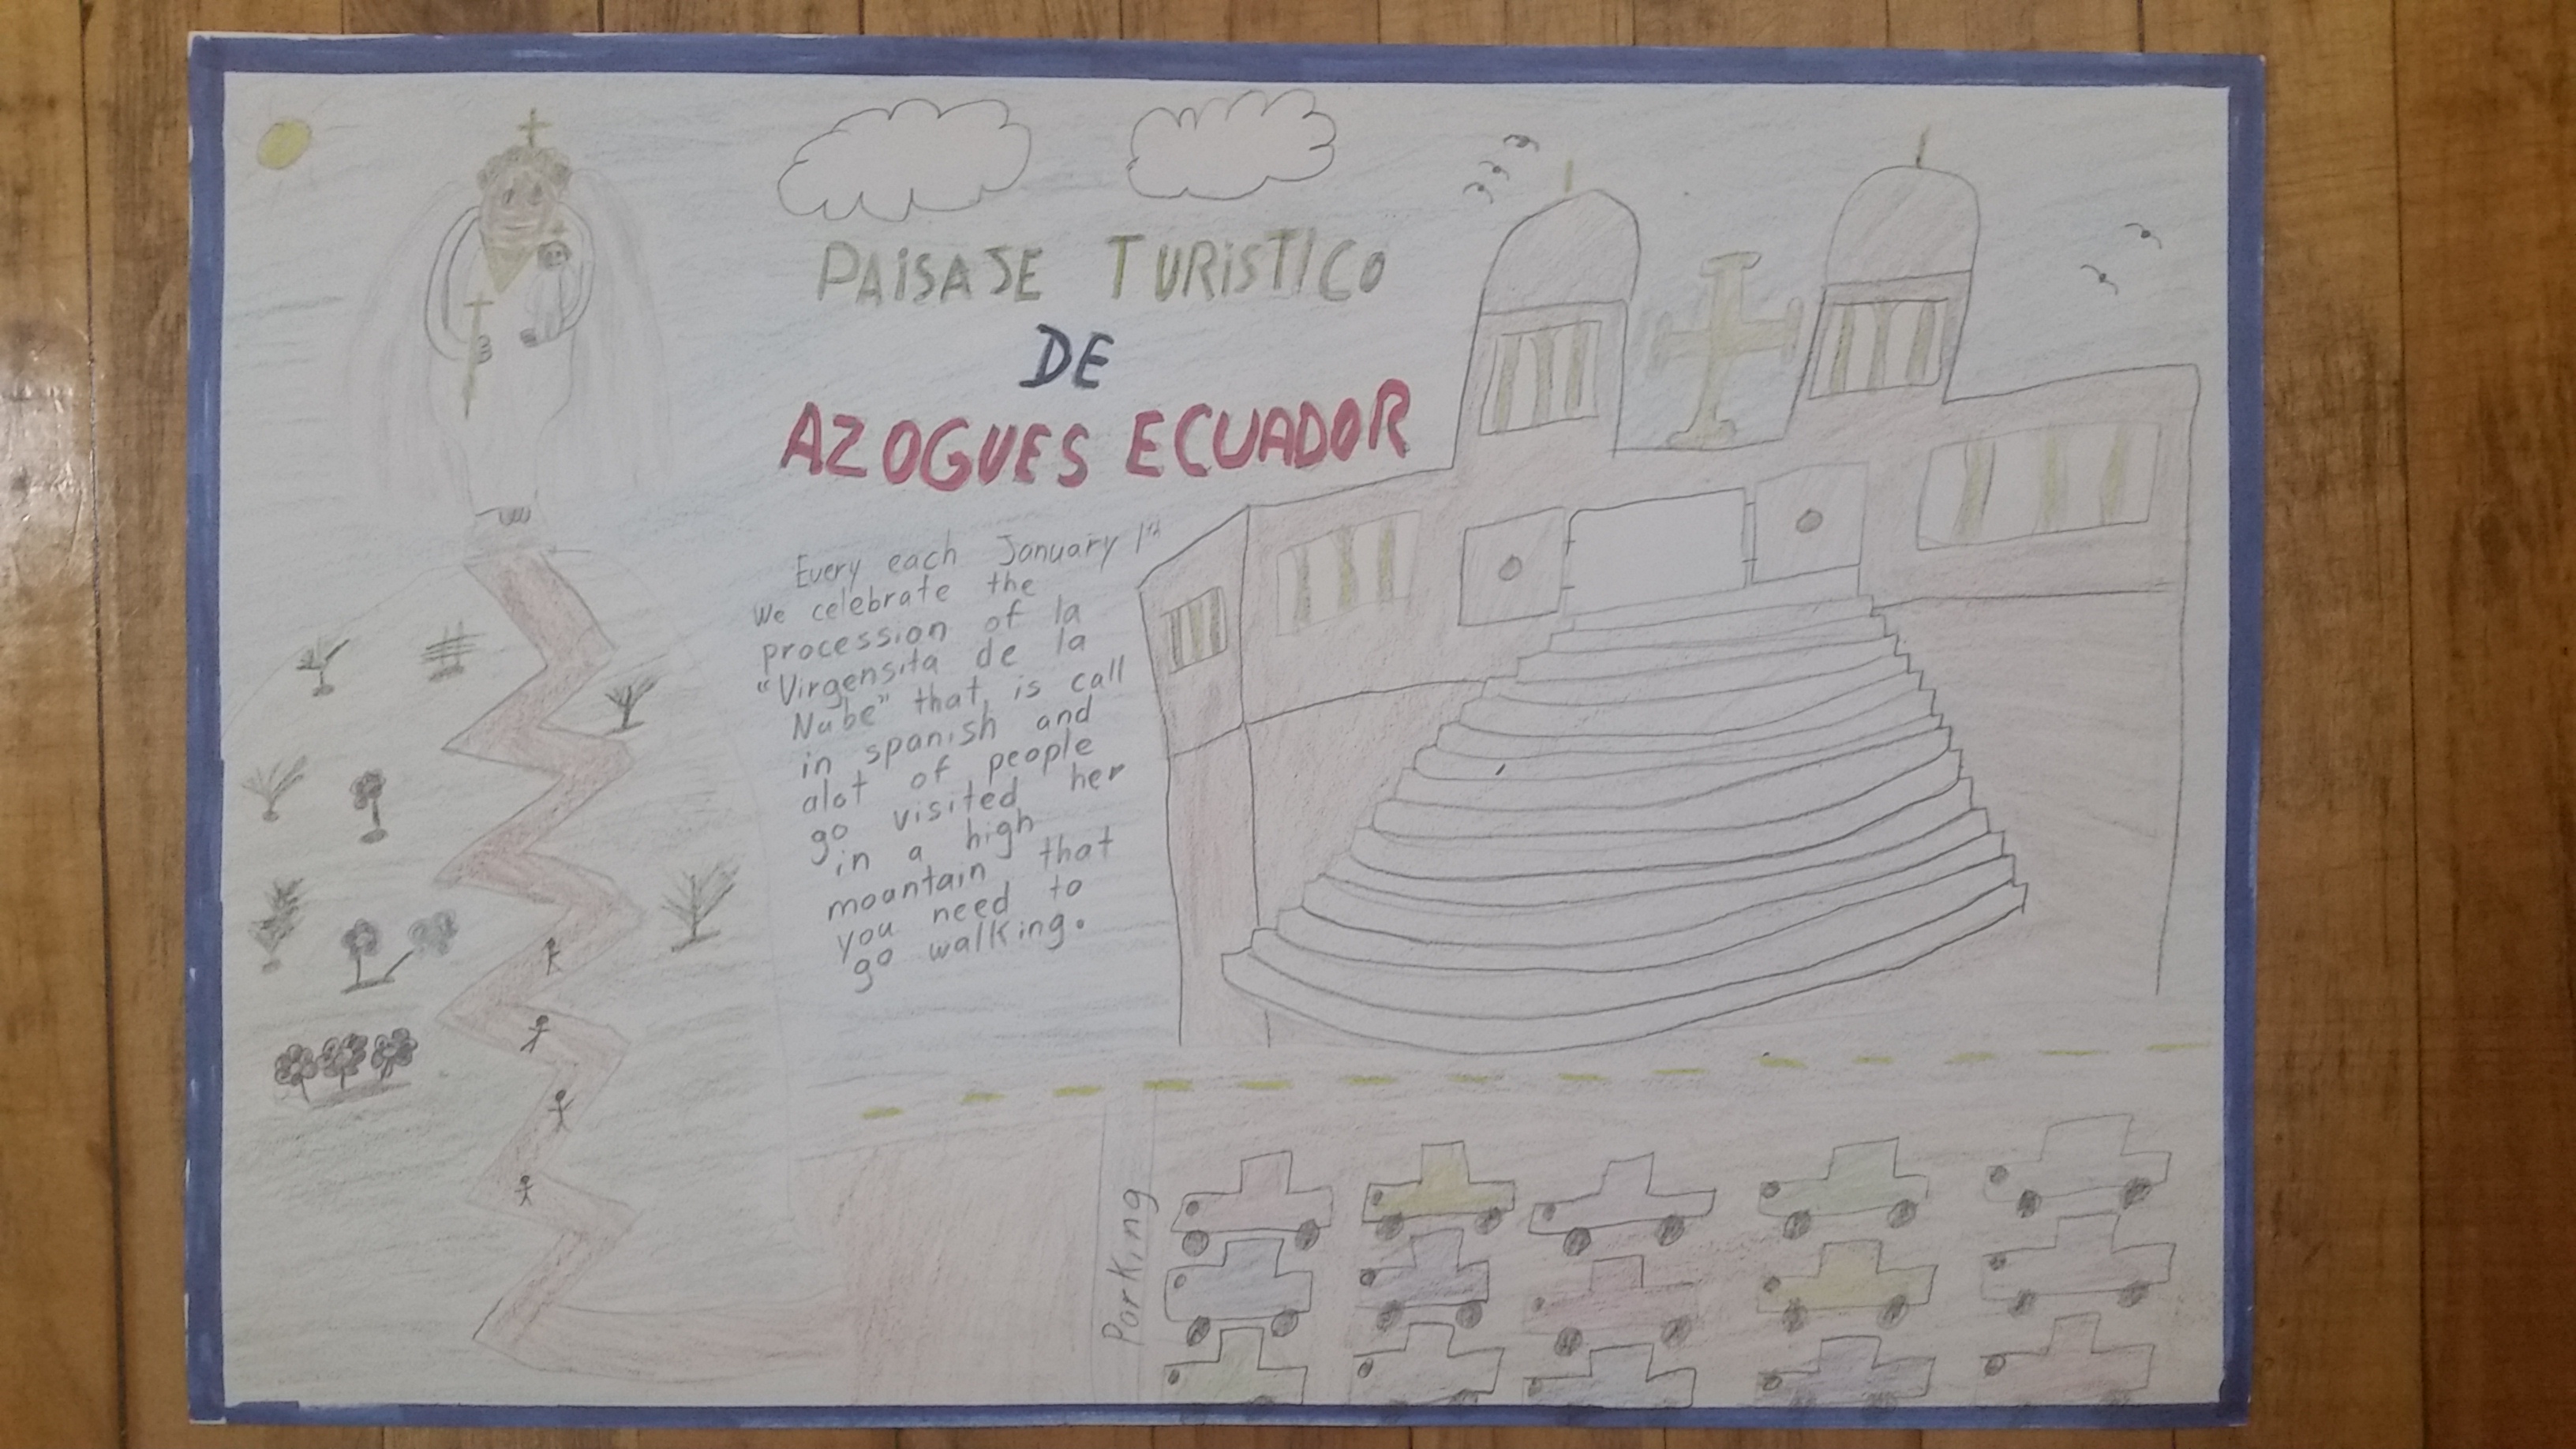 PAISAJE TURISTICO
DE
AZOGUES ECUADOR
Every each January 1st
We celebrate the
procession of la
"Virgensita de la
Nube" that, is call
in spanish and
alot of people
go visited her
in a high
moantain that
you need to
go walking.
Parking